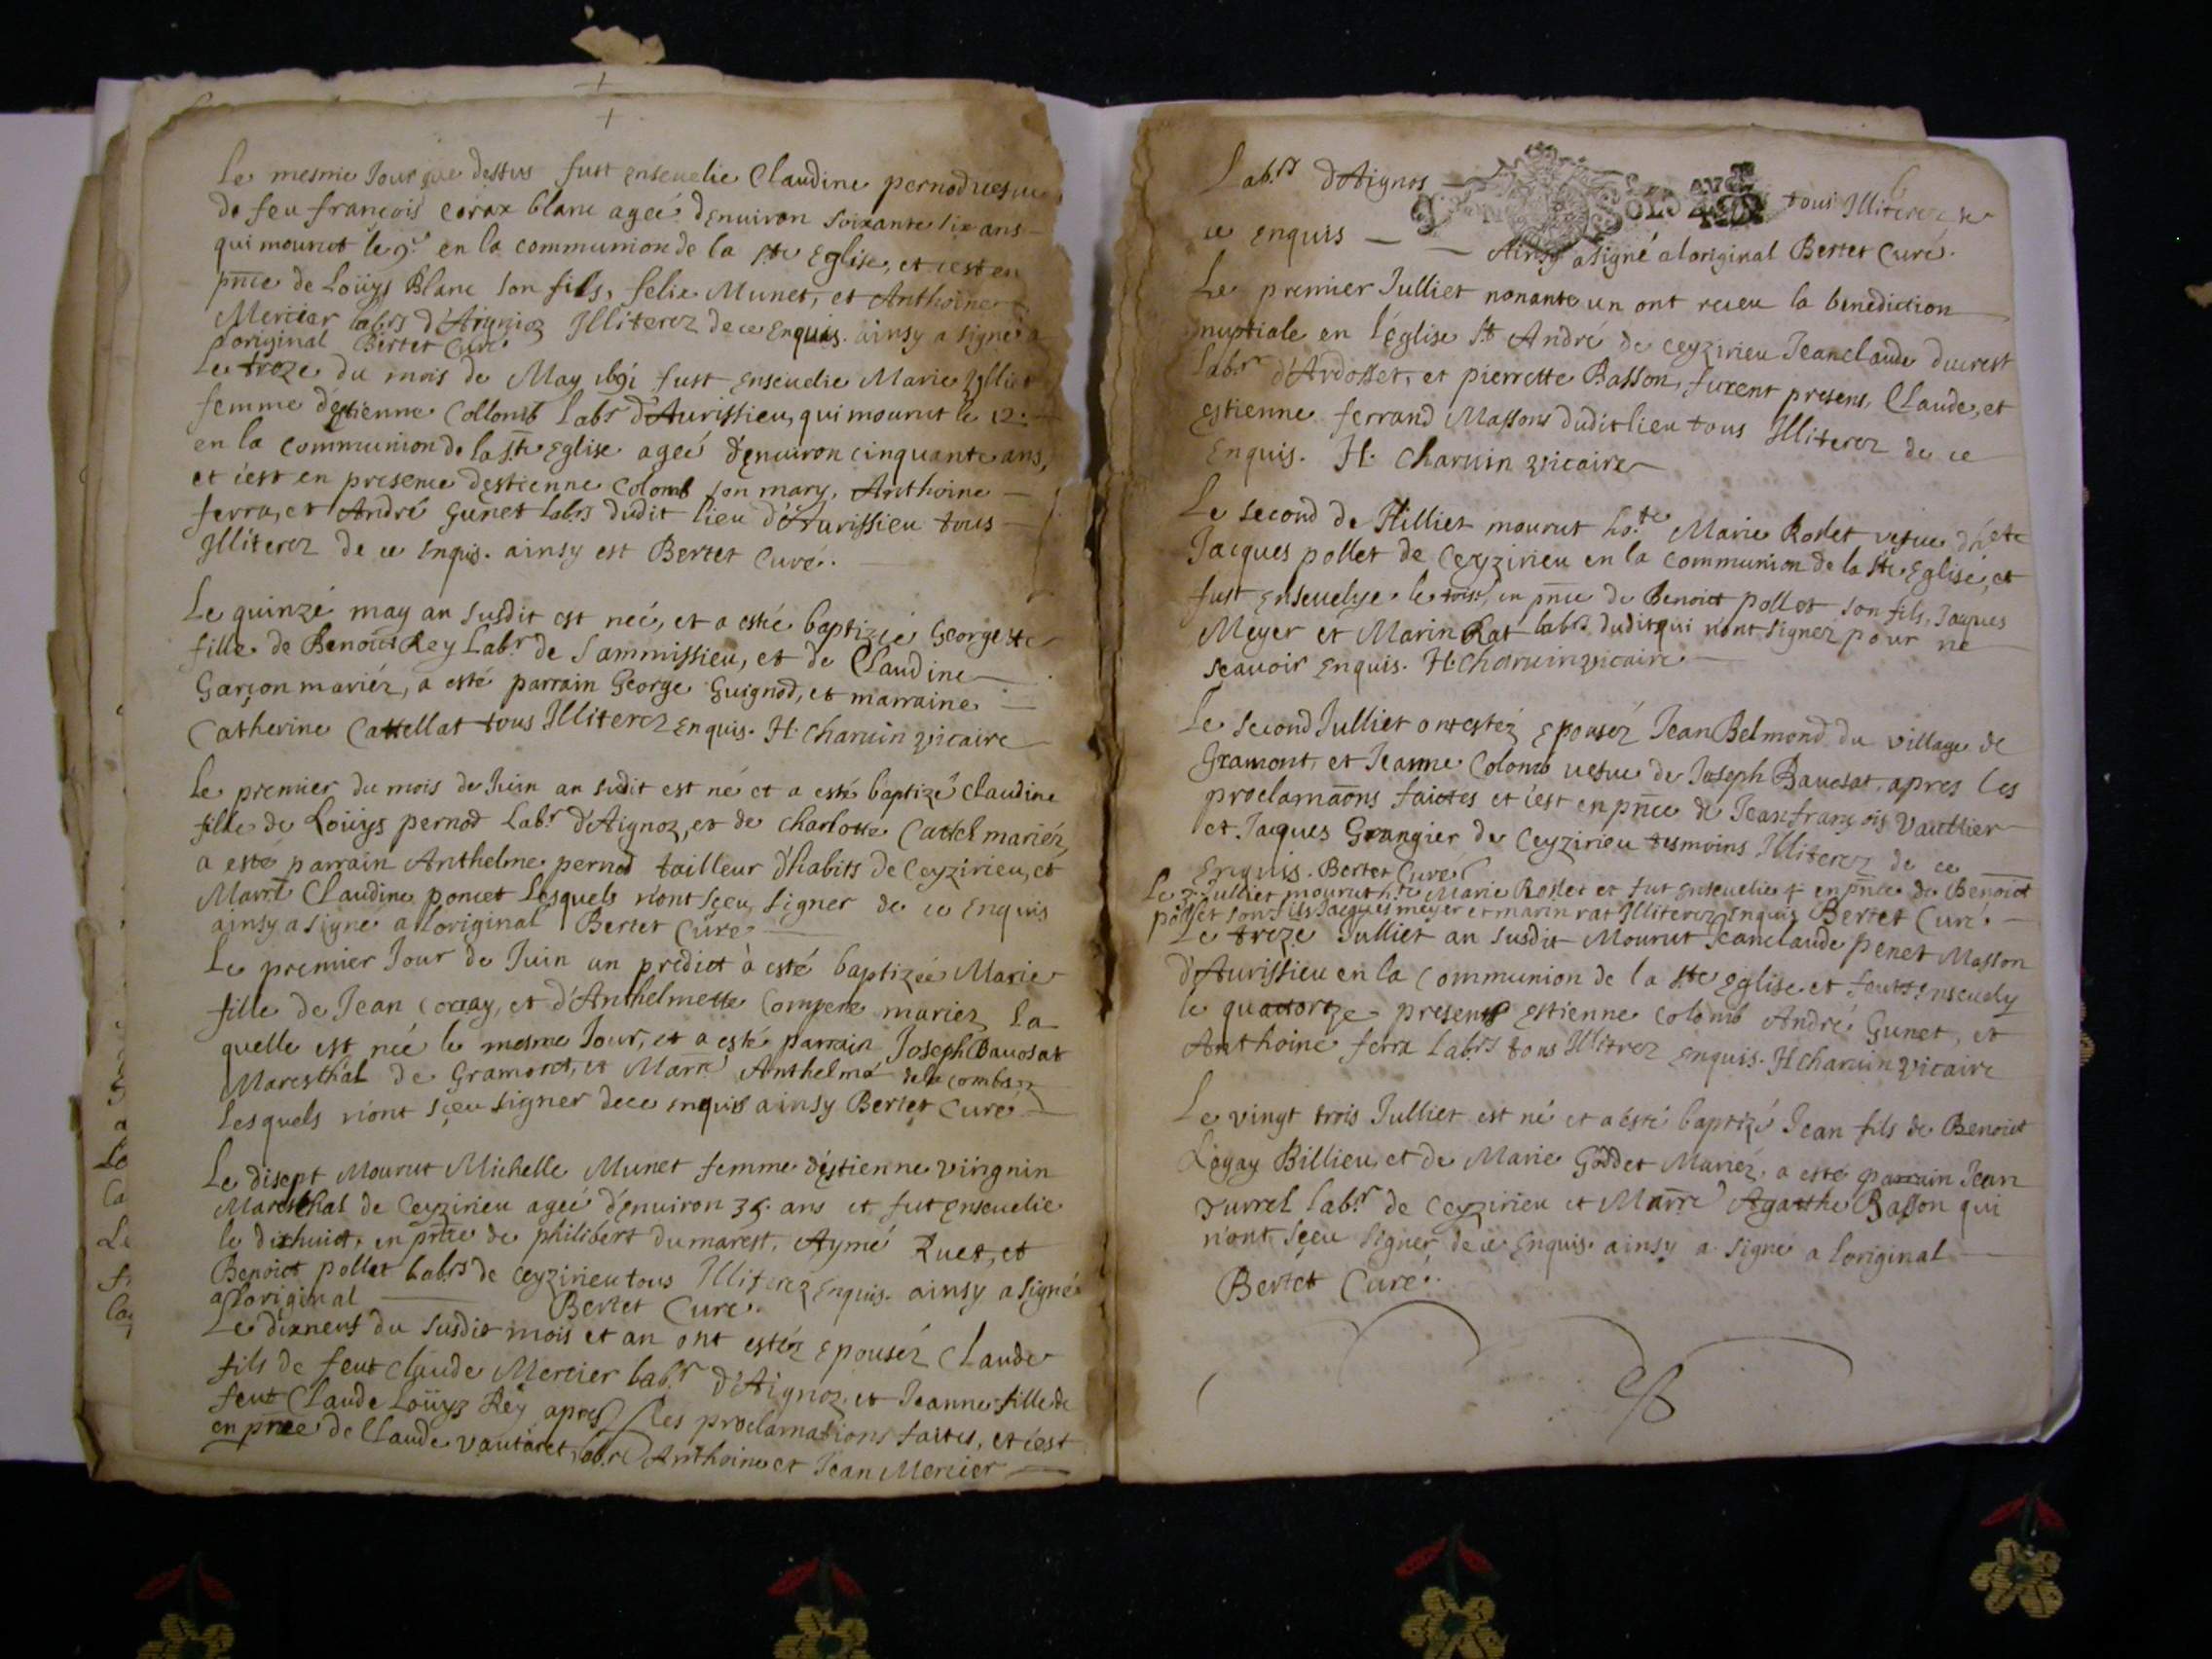 Le mesme Jour que dessus fust enseuelie Claudine pernod uesue
de feu françois corax blanc ageé d'enuiron soixante six ans
qui mourut le 9e en la communion de la ste Eglise, et c'est en
pnce de Loüys Blanc son fils, felix Munet, et Anthoine
Mercier labrs d'Aignoz Illiterez de ce Enquis. ainsy a signé a
l'original Bertet Curé
Le treze du mois de May 1691 fust enseuelie Marie
femme d'estienne Collomb Labr d'Aurissieu, qui mourut le 12
en la communion de la Ste Eglise ageé d'enuiron cinquante ans,
et c'est en presence d'estienne Colomb son mary, Anthoine
ferra, et André Gunet labrs dudit lieu d'Aurissieu tous
Illiterez de ce Enquis. ainsy est Bertet Curé.
Le quinzé may an susdit est neé, et a esté baptizée Georgette
fille de Benoict Rey Labr de Sammissieu, et de Claudine
Garçon mariéz, a esté parrain George Guignod, et marraine
Catherine Cattellat tous Illiterez Enquis. H. Charuin vicaire
Le premier du mois de Juin an sudit est né et a esté baptizé Claudine
fille de Loüys pernod Labr d'Aignoz, et de Charlotte Cattel mariéz,
a esté parrain Anthelme pernod tailleur d'habits de Ceyzirieu, et
Marre Claudine poncet Lesquels n'ont sçeu signer de ce Enquis
ainsy a signé a l'original Bertet Curé
Le premier Jour de Juin an prédict à esté baptizée Marie
fille de Jean Corray, et d'Anthelmette Compere mariez La
quelle est née le mesme Jour, et a esté parrain Joseph Bauosat
Maresthal de Gramont, et Marre Anthelme de la combaz
Lesquels n'ont sçeu signer de ce enquis ainsy Bertet Curé
Le disept Mourut Michelle Munet femme d'éstienne virignin
Maresthal de Ceyzirieu ageé d'enuiron 35 ans et fut enseuelie
le dixhuict, en pnce de philibert dumarest, Aymé Ruet, et
Benoict pollet Labrs de Ceyzirieu tous Illiterez Enquis. ainsy a signé
a l'original Bertet Curé.
Le dixneuf du susdit mois et an ont estéz Epouséz Claude
fils de feut Claude Mercier labr d'Aignoz, et Jeanne fille de
feut Claude Loüys Rey apres les proclamations faites, et c'est
en pnce de Claude vautaret, labr Anthoine et Jean Mercier
6
Labrs d'Aignos tous Illiterez de
ce enquis Ainsy a signé a l'original Bertet Curé.
Le premier Julliet nonante un ont receu la benediction
nuptiale en l'église St André de Ceyzirieu Jeanclaude ducrest
labr d'Ardosset, et pierrette Basson, furent presens, Claude, et
estienne ferrand Massons dudit lieu tous Illiterez de ce
Enquis. H. Charuin vicaire
Le second de Julliet mourut ho.te Marie Roslet vesue d'hte
Jacques pollet de Ceyzirieu en la communion de la Ste Eglise, et
fust enseuelye le trois, en pnce de Benoict pollet son fils, Jaques
Meyer et Marin Rat labrs dudit qui n'ont signez pour ne
scauoir Enquis. H. Charuin vicaire
Le second Julliet ont estéz Epouséz Jean Belmond du village de
Gramont, et Jeanne Colomb uesue de Joseph Bauosat, apres les
proclamaons faictes et c'est en pnce de Jean françois Vautlier
et Jaques Grangier de Ceyzirieu tesmoins Illiterez de ce
Enquis. Bertet Curé
Le 2 Julliet mourut h.te Marie Roslet et fut enseuelie en pnce de Benoict
pollet son fils Jacques meyer et marin rat Illiterez Enquis Bertet Curé.
Le treze Julliet an susdit Mourut Jeanclaude penet Masson
d'Aurissieu en la Communion de la Ste eglise et feut enseuely
le quatorze presens estienne colomb André Gunet, et
Anthoine ferra Labrs tous Illitrez Enquis. H Charuin vicaire
Le vingt trois Julliet est né et a esté baptizé Jean fils de Benoict
Legay Billieu, et de Marie Goddet Mariéz. a esté parrain Jean
Turrel labr de Ceyzirieu et Marre Agatthe Basson qui
n'ont sçeu signer de ce Enquis. ainsy a signé a l'original
Bertet Curé.